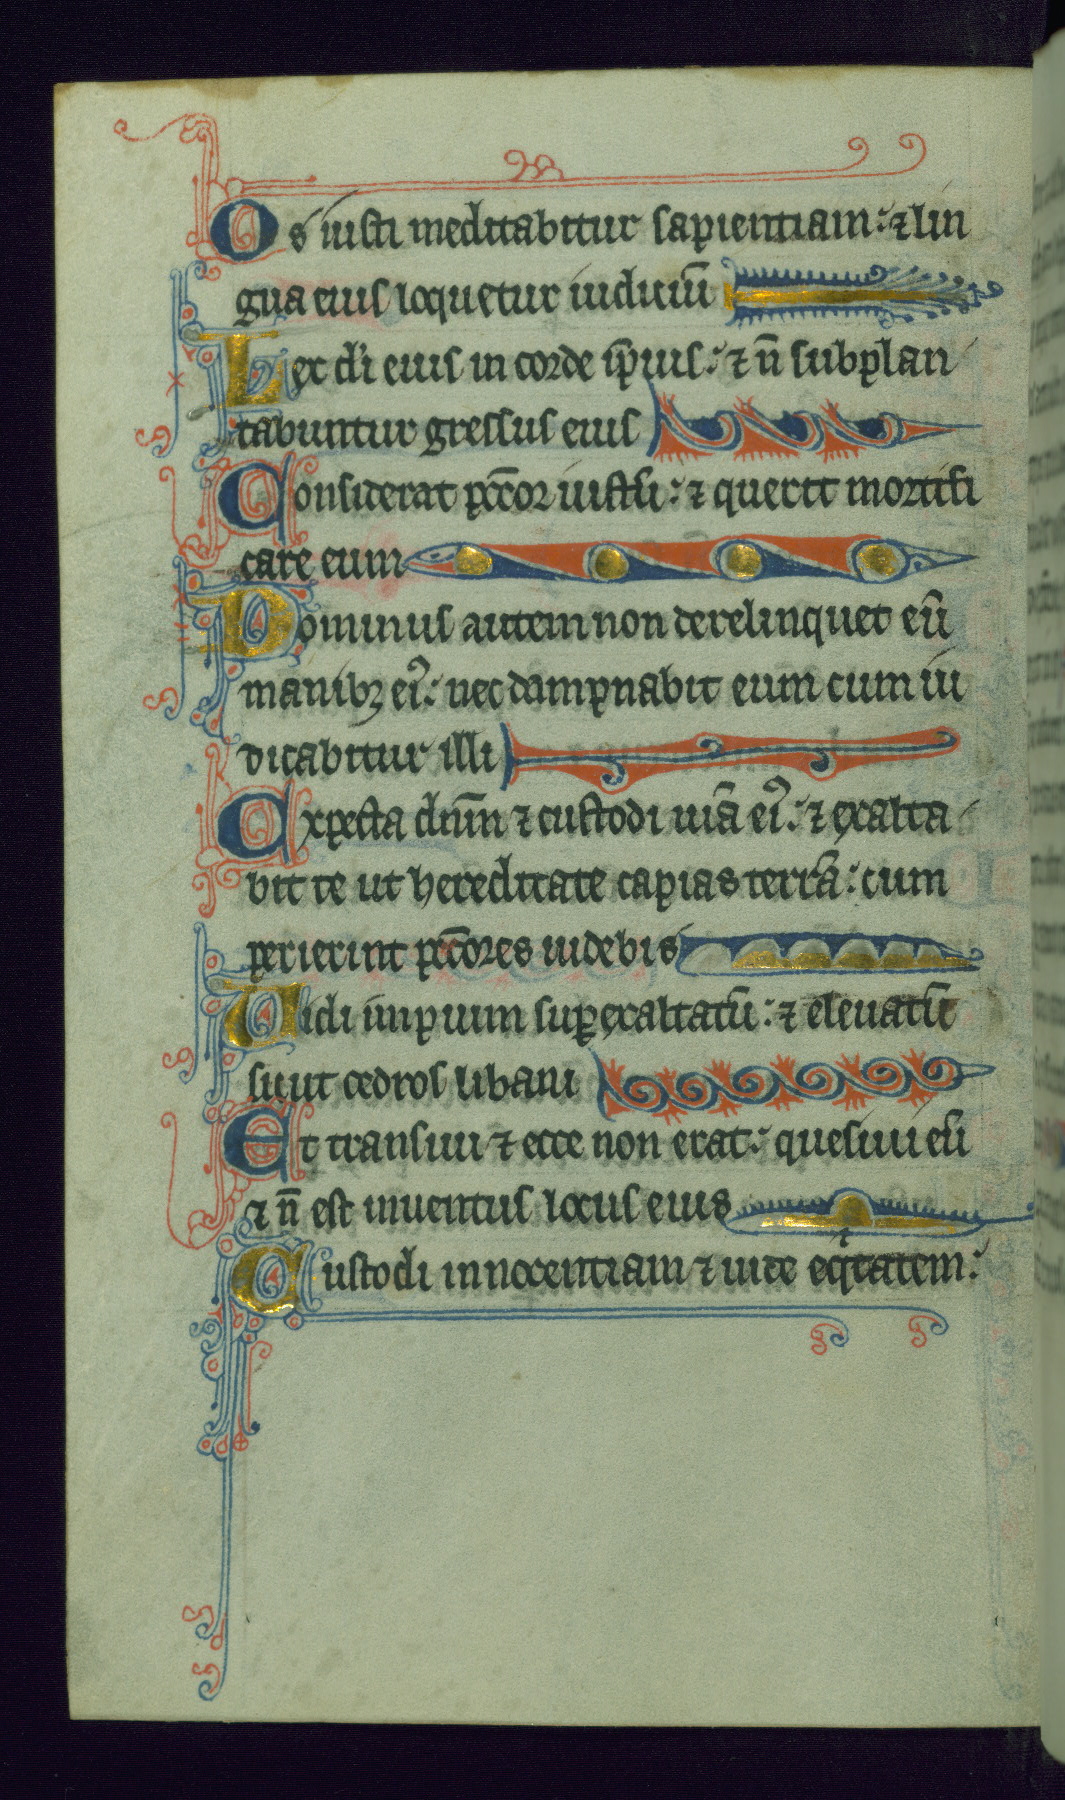 Os iusti meditabitur sapientiam: ⁊ lin
gua eius loquetur iudiciū
Lex di eius in corde ip̄ius: ⁊ n̄ subplan
tabuntur gressus eius
Considerat pc̄cor iustū: ⁊ querit mortifi
care eum
Dominus autem non derelinquet eū
manibꝫ ei᾽: nec dampnabit eum cum iu
dicabitur illi
Expecta dn̄m ⁊ custodi uiā ei᾽: ⁊ exalta
bit te ut hereditate capias terrā: cum
perierint pc̄cores uidebis
Uidi impium suꝑexaltatū: ⁊ eleuatū
sicut cedros libani
Et transiui ⁊ ecce non erat: quesiui eū
⁊ n̄ est inuentus locus eius
Custodi innocentiam ⁊ uide eqͥtatem: